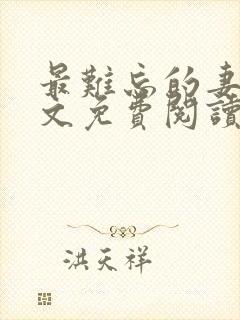 最難忘的妻
文免費閱讀
洪天祥